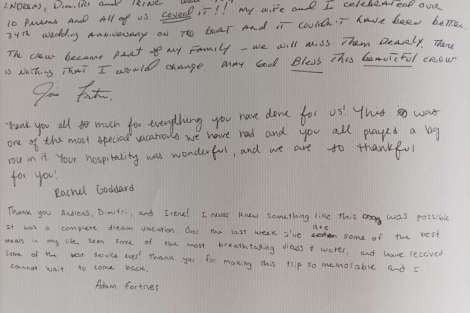 Andreas, Dimitri and Irene
10 Pariani and all of us loved it!! My wife and I celebrated our
34th wedding anniversary on the boat and it couldn't have been better.
The crew became part of my family - we will miss them dearly. There
is nothing that I would change. May God Bless This beautiful crew
Thank you all so much for everything you have done for us! This was
one of the most special vacations we have had and you all played a big
role in it. Your hospitality was wonderful, and we are so thankful
for you!
Rachel Goddard
Thank you Andreas, Dimitri, and Irene! I never knew something like this was possible
It was a complete dream vacation. Over the last week I've ate some of the best
meals in my life, seen some of the most breathtaking views & water, and have received
some of the best service ever! Thank you for making this trip so memorable and I
cannot wait to come back.
Adam Fortner